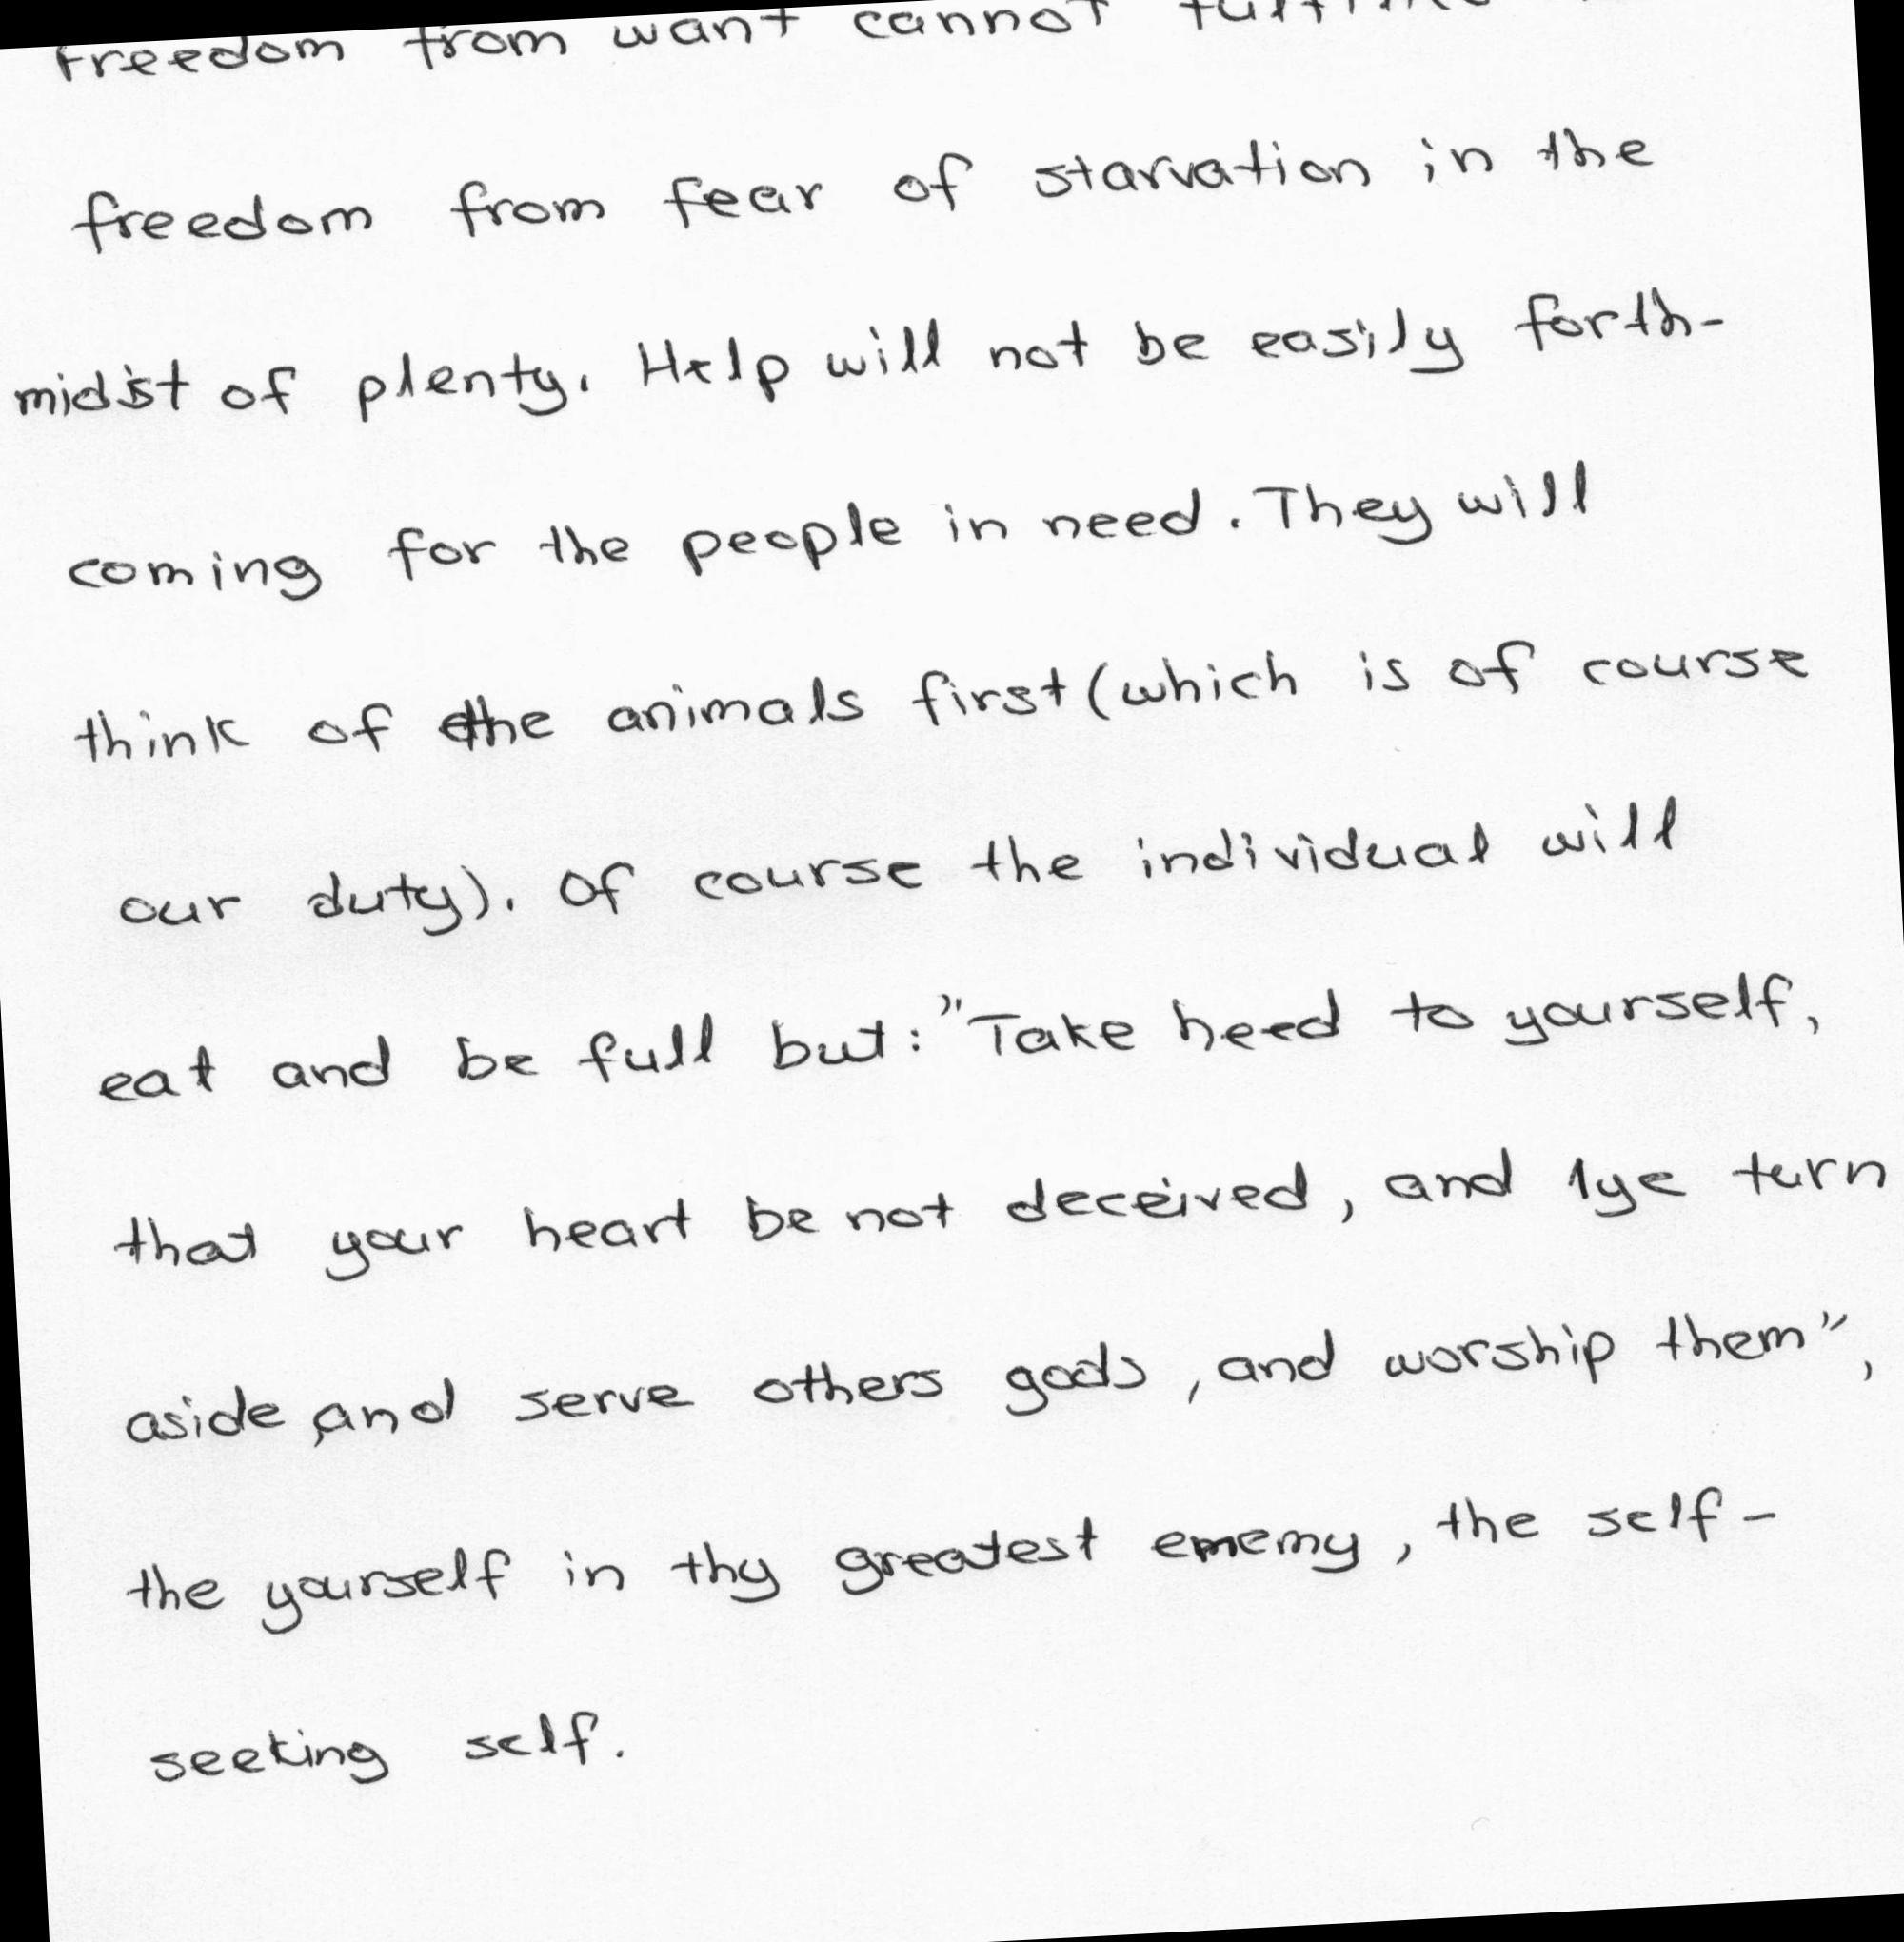 freedom from want cannot
freedom from fear of starvation in the
midst of plenty. Help will not be easily forth-
coming for the people in need. They will
think of the animals first (which is of course
our duty). Of course the individual will
eat and be full but: "Take heed to yourself,
that your heart be not deceived, and 1ye turn
aside, and serve others gods, and worship them",
the yourself in thy greatest ememy, the self-
seeking self.